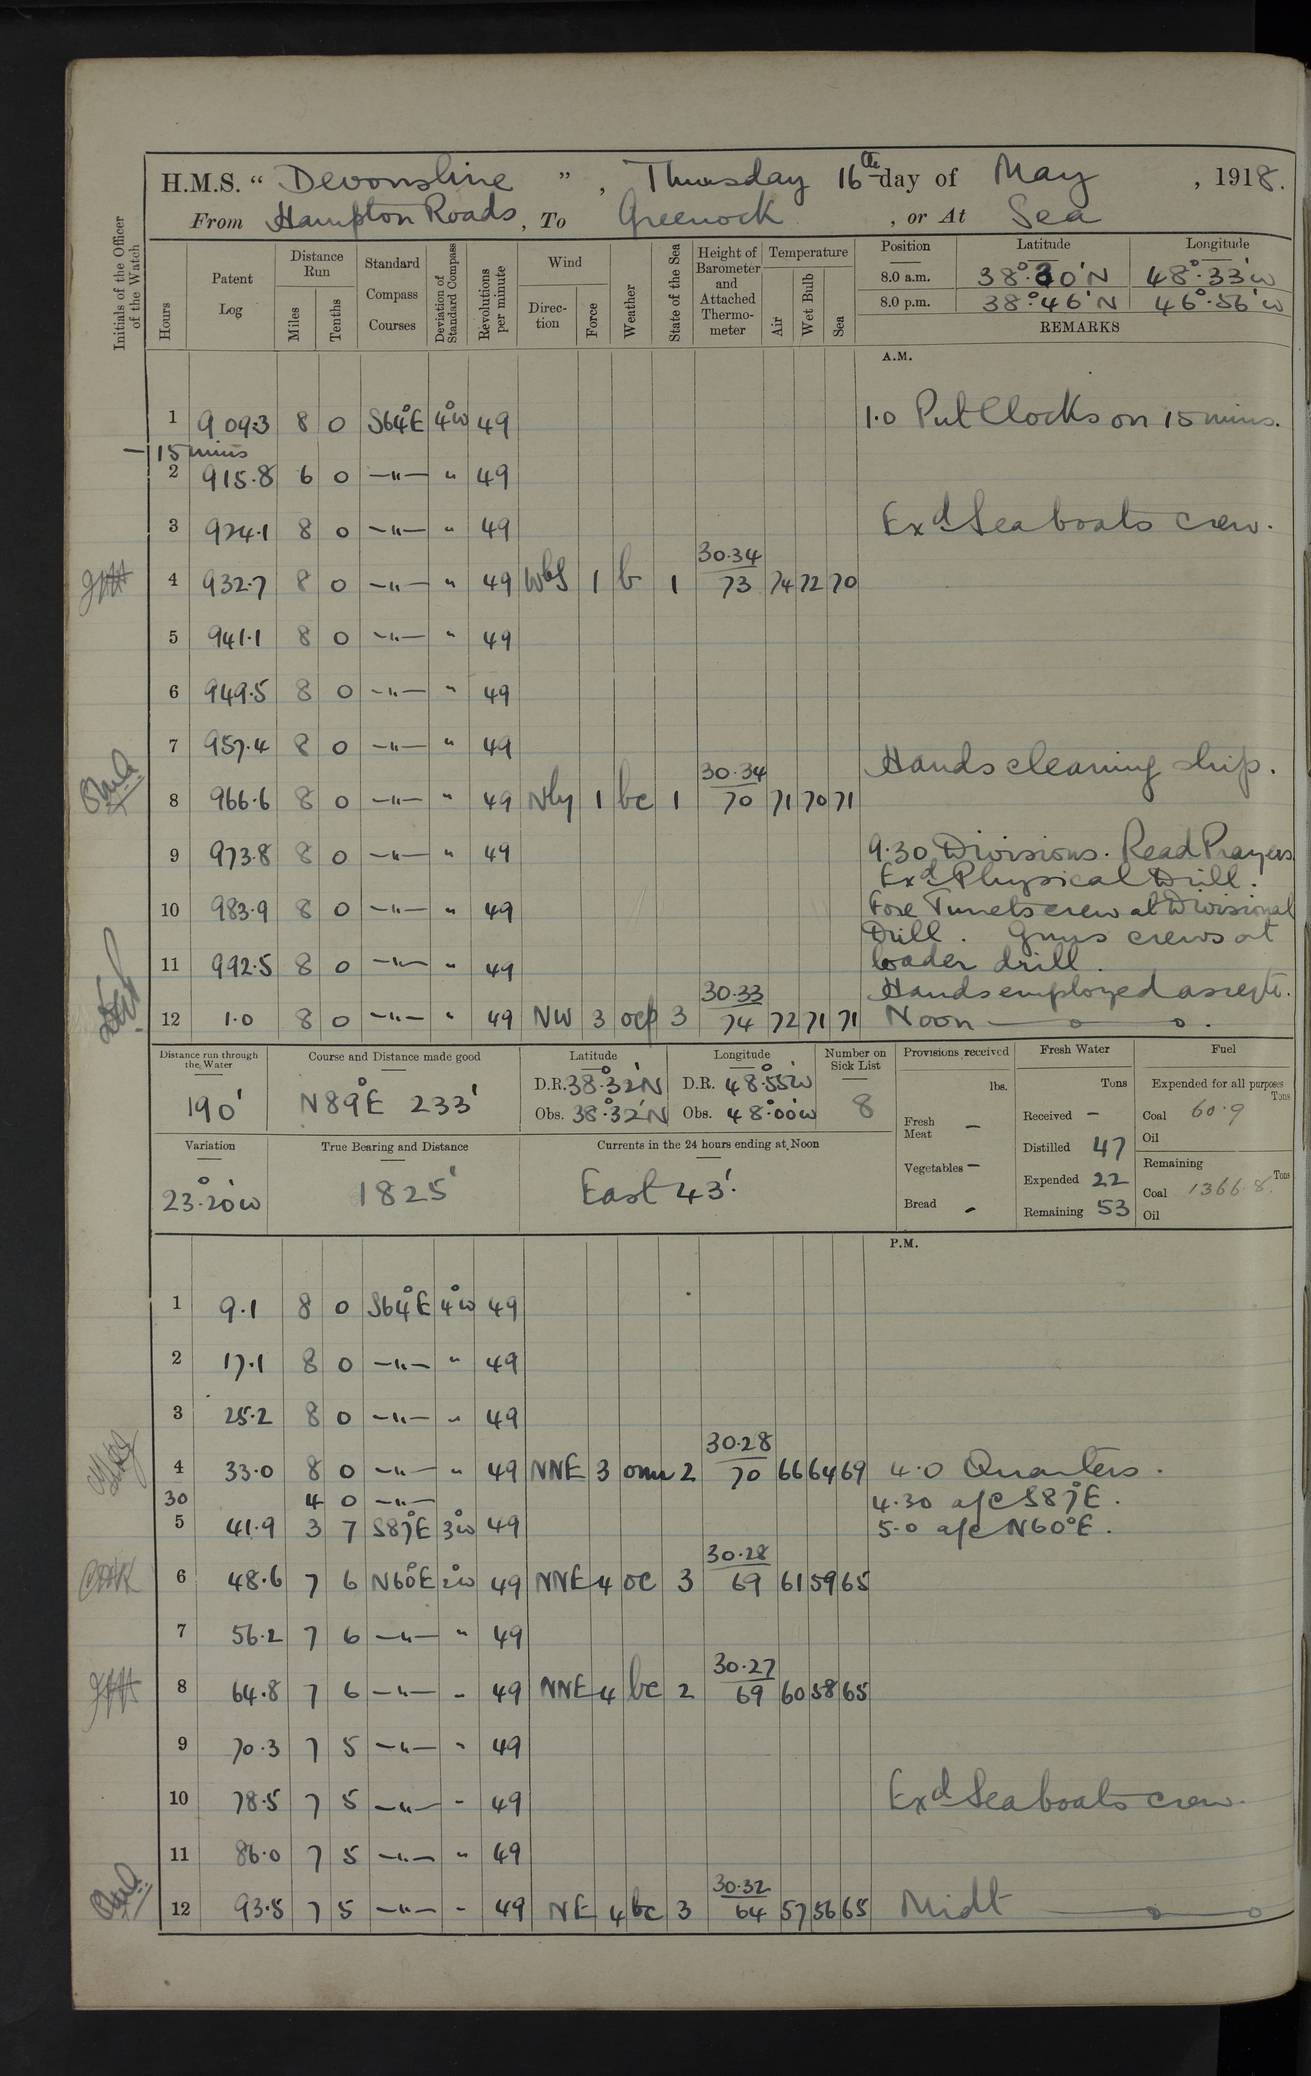 H.M.S. “ Devonshire ” , Thursday 16th day of May , 1918.
From Hampton Roads , To Greenock , or At Sea
Initials of the Officer of the Watch
Hours
Patent Log
Distance Run
Miles
Tenths
Standard Compass Courses
Deviation of Standard Compass
Revolutions per minute
Wind
Direction
Force
Weather
State of the Sea
Height of Barometer and Attached Thermometer
Temperature
Air
Wet Bulb
Sea
Position Latitude Longitude
8.0 a.m. 38°.30'N 48°.33'W
8.0 p.m. 38°.46'N 46°.56'W
REMARKS
A.M.
1 909.3 8 0 S64°E 4°W 49 1.0 Put Clocks on 15 mins.
— 15 mins
2 915.8 6 0 —"— " 49
3 924.1 8 0 —"— " 49 Exd Seaboats crew.
4 932.7 8 0 —"— " 49 WbS 1 b 1 30.34 73 74 72 70
5 941.1 8 0 —"— " 49
6 949.5 8 0 —"— " 49
7 957.4 8 0 —"— " 49 Hands cleaning ship.
8 966.6 8 0 —"— " 49 Nly 1 bc 1 30.34 70 71 70 71
9 973.8 8 0 —"— " 49 9.30 Divisions. Read Prayers
Exd Physical Drill.
10 983.9 8 0 —"— " 49 Fore Turrets crew at Divisional
Drill. Guns crews at
11 992.5 8 0 —"— " 49 loader drill.
Hands employed as reqte.
12 1.0 8 0 —"— " 49 NW 3 ocp 3 30.33 74 72 71 71 Noon
Distance run through the Water 190'
Course and Distance made good N89°E 233'
Latitude D.R. 38°.32'N Obs. 38°.32'N
Longitude D.R. 48°.55'W Obs. 48°.00'W
Number on Sick List 8
Provisions received lbs.
Fresh Meat —
Vegetables —
Bread -
Fresh Water Tons
Received —
Distilled 47
Expended 22
Remaining 53
Fuel
Expended for all purposes Tons
Coal 60.9
Oil
Remaining Tons
Coal 1366.8
Oil
Variation 23°.20'W
True Bearing and Distance 1825'
Currents in the 24 hours ending at Noon East 43'.
P.M.
1 9.1 8 0 S64°E 4°W 49
2 17.1 8 0 —"— " 49
3 25.2 8 0 —"— " 49
4 33.0 8 0 —"— " 49 NNE 3 omr 2 30.28 70 66 64 69 4.0 Quarters.
30 4 0 —"— 4.30 a/c S87°E.
5 41.9 3 7 S87°E 3°W 49 5.0 a/c N60°E.
6 48.6 7 6 N60°E 2°W 49 NNE 4 oc 3 30.28 69 61 59 65
7 56.2 7 6 —"— " 49
8 64.8 7 6 —"— " 49 NNE 4 bc 2 30.27 69 60 58 65
9 70.3 7 5 —"— " 49
10 78.5 7 5 —"— " 49 Exd Seaboats crew.
11 86.0 7 5 —"— " 49
12 93.5 7 5 —"— " 49 NE 4 bc 3 30.32 64 57 56 65 Midt